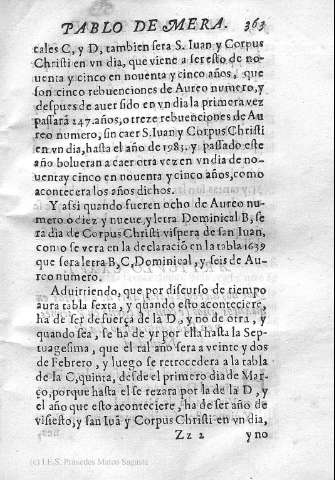 PABLO DE MERA. 363
tales C, y D, tambien sera S. Iuan y Corpus
Christi en vn dia, que viene a ser esto de no-
uenta y cinco en nouenta y cinco años, que
son cinco rebuenciones de Aureo numero, y
despues de auer sido en vn dia la primera vez
passarã 247. años, o treze rebuenciones de Au
reo numero, sin caer S. Iuan y Corpus Christi
en vn dia, hasta el año de 1983. y passado este
año bolueran a caer otra vez en vn dia de no-
uenta y cinco en nouenta y cinco años, como
acontecera los años dichos.
Y assi quando fueren ocho de Aureo nu-
mero o diez y nueue, y letra Dominical B, se
ra dia de Corpus Christi vispera de san Iuan,
como se vera en la declaració en la tabla 1639
que sera letra B, C, Dominical, y seis de Au-
reo numero.
Aduirriendo, que por discurso de tiempo
aura tabla sexta, y quando esto aconteciere,
ha de ser de fuerça de la D, y no de otra, y
quando sea, se ha de yr por ella hasta la Sep-
tuagesima, que el tal año sera a veinte y dos
de Febrero, y luego se retrocedera a la tabla
de la C, quinta, desde el primero dia de Mar-
ço, porque hasta el se rezara por la de la D, y
el año que esto aconteciere, ha de ser año de
visiesto, y san Iuã y Corpus Christi en vn dia,
Zz 2 y no
(c) I.E.S. Práxedes Mateo Sagasta